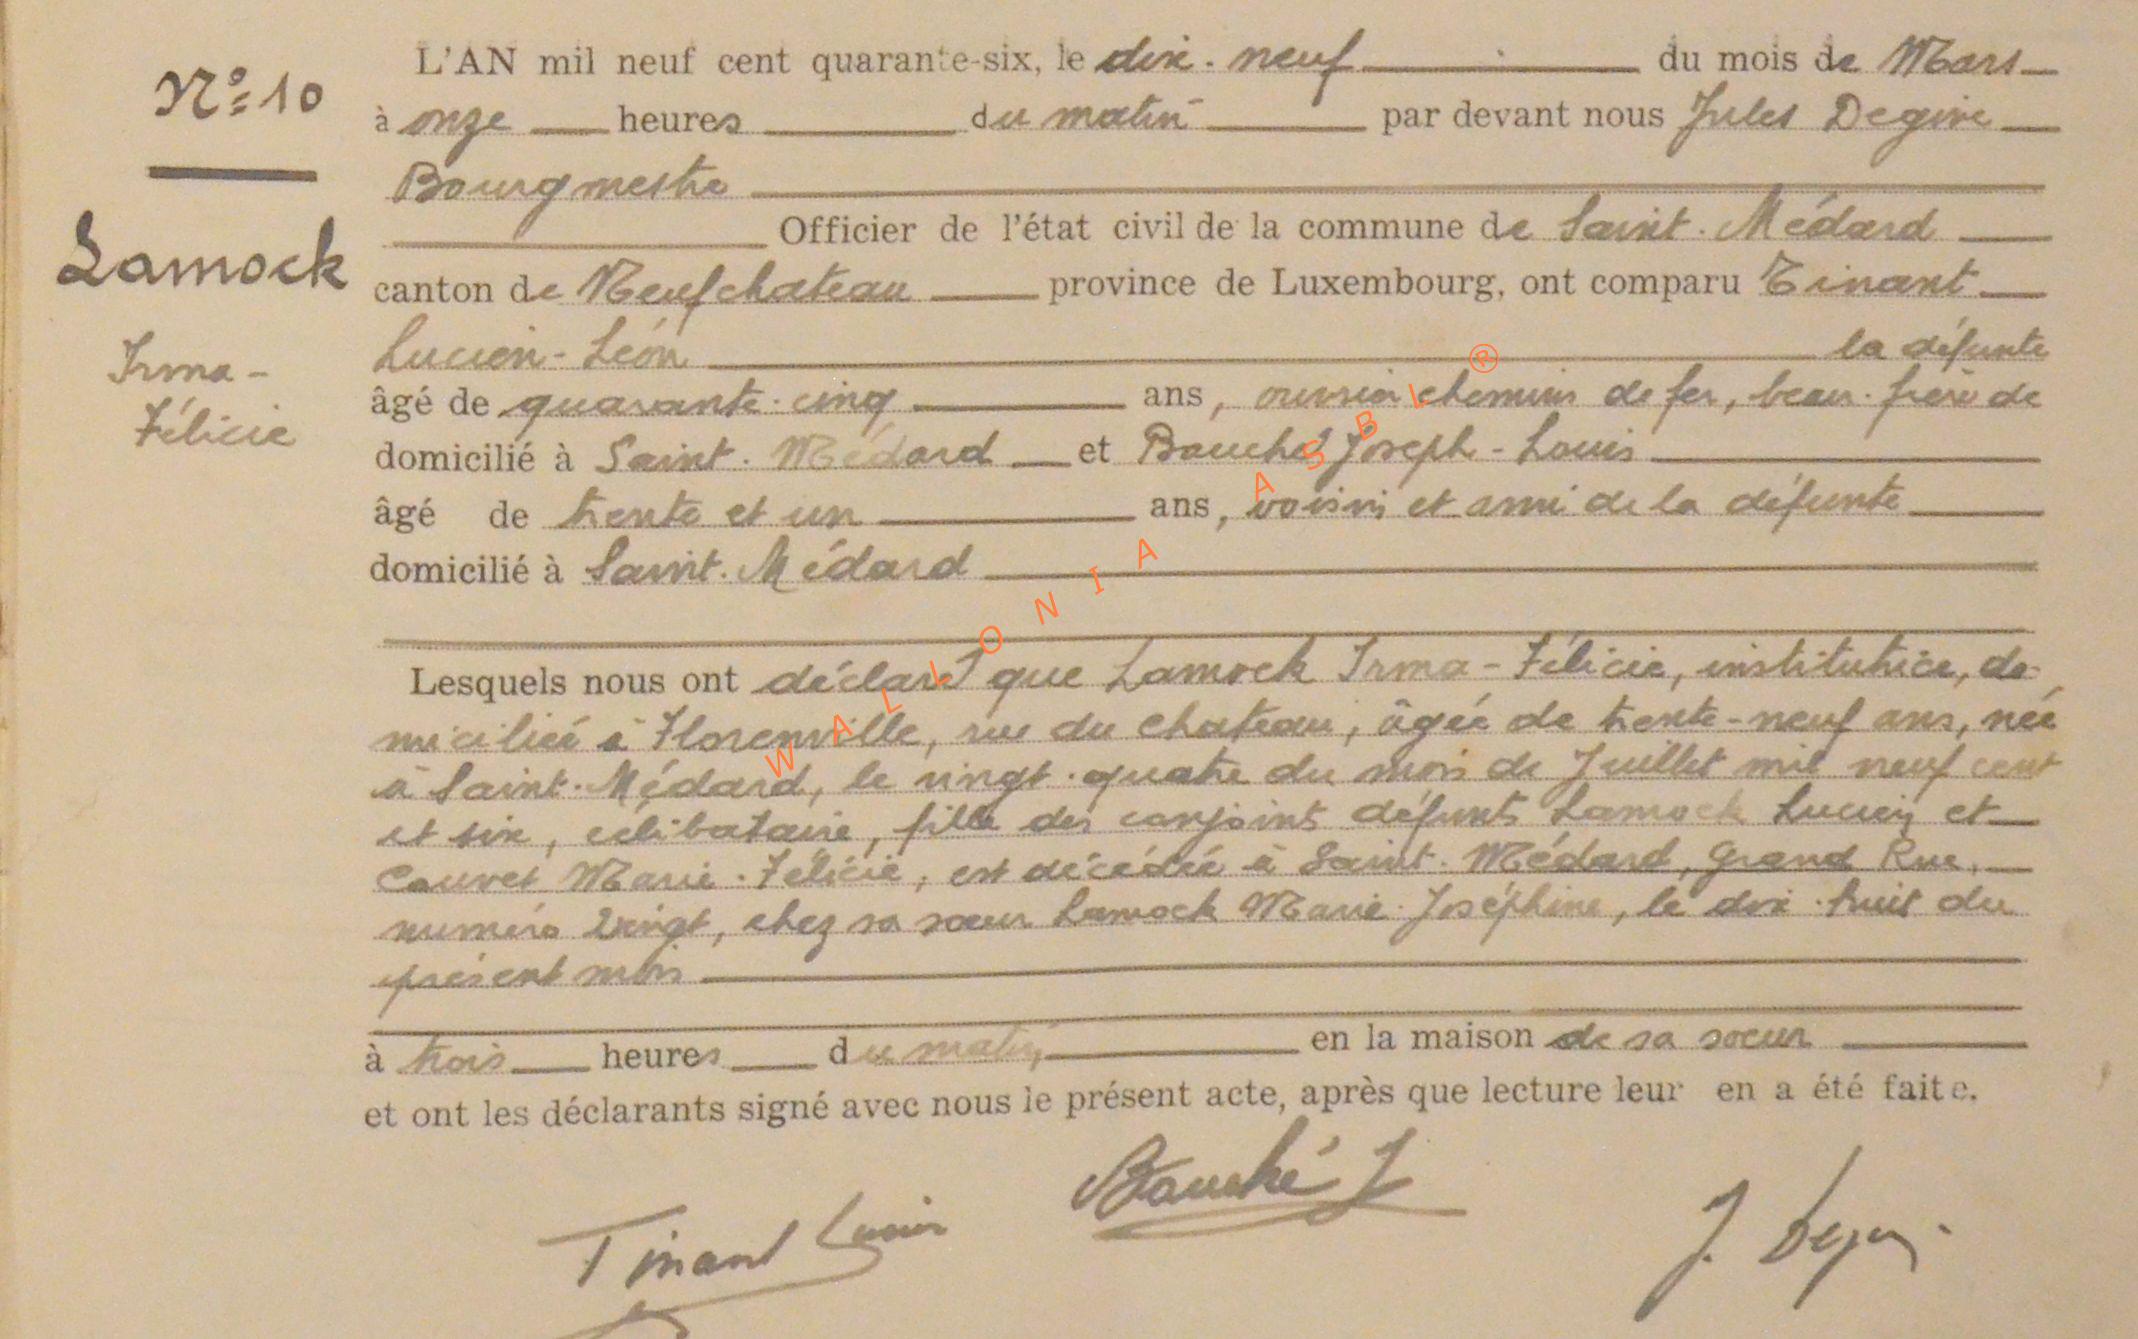 N° 10
Lamock
Irma-
Félicie
L'AN mil neuf cent quarante-six, le dix-neuf du mois de Mars
à onze heures du matin par devant nous Jules Degive
Bourgmestre
Officier de l'état civil de la commune de Saint-Médard
canton de Neufchateau province de Luxembourg, ont comparu Tinant
Lucien-Léon la défunte
âgé de quarante-cinq ans, ouvrier chemins de fer, beau-frère de
domicilié à Saint-Médard et Bauché Joseph-Louis
âgé de trente et un ans, voisin et ami de la défunte
domicilié à Saint-Médard
Lesquels nous ont déclaré que Lamock Irma-Félicie, institutrice, do-
miciliée à Florenville, rue du Chateau, âgée de trente-neuf ans, née
à Saint-Médard, le vingt-quatre du mois de Juillet mil neuf cent
et six, célibataire, fille des conjoints défunts Lamock Lucien et
Couvet Marie-Félicie, est décédée à Saint-Médard, Grand Rue,
numéro vingt, chez sa sœur Lamock Marie-Joséphine, le dix-huit du
présent mois
à trois heures du matin en la maison de sa soeur
et ont les déclarants signé avec nous le présent acte, après que lecture leur en a été faite.
Bauché J
Tinant Lucien
J. Degive
WALLONIA ASBL ®